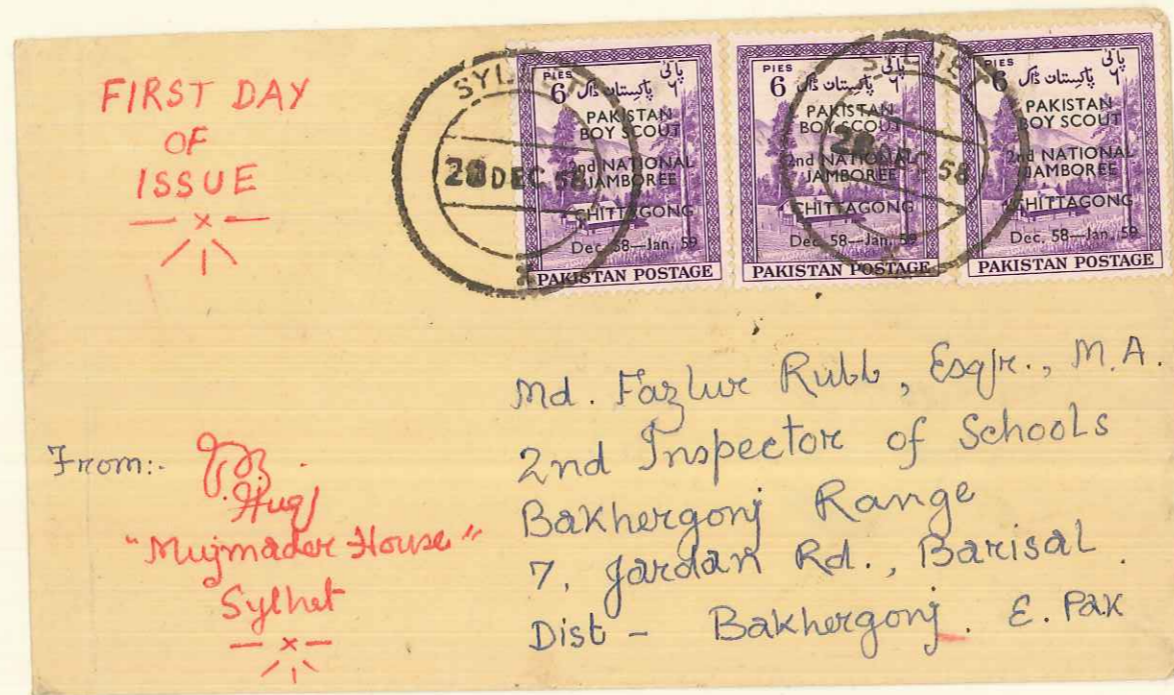 FIRST DAY
OF
ISSUE
SYLHET
28 DEC 58
SYLHET
28 DEC 58
PIES
6
پائی
۶
پاکستان ڈاک
PAKISTAN
BOY SCOUT
2nd NATIONAL
JAMBOREE
CHITTAGONG
Dec. 58—Jan. 59
PAKISTAN POSTAGE
PIES
6
پائی
۶
پاکستان ڈاک
PAKISTAN
BOY SCOUT
2nd NATIONAL
JAMBOREE
CHITTAGONG
Dec. 58—Jan. 59
PAKISTAN POSTAGE
6
پائی
۶
پاکستان ڈاک
PAKISTAN
BOY SCOUT
2nd NATIONAL
JAMBOREE
CHITTAGONG
Dec. 58—Jan. 59
PAKISTAN POSTAGE
Md. Fazlur Rubb, Esqr., M.A.
2nd Inspector of Schools
Bakhergonj Range
7, Jardan Rd., Barisal.
Dist - Bakhergonj. E. Pak
From:-
Huq
"Mujmader House"
Sylhet